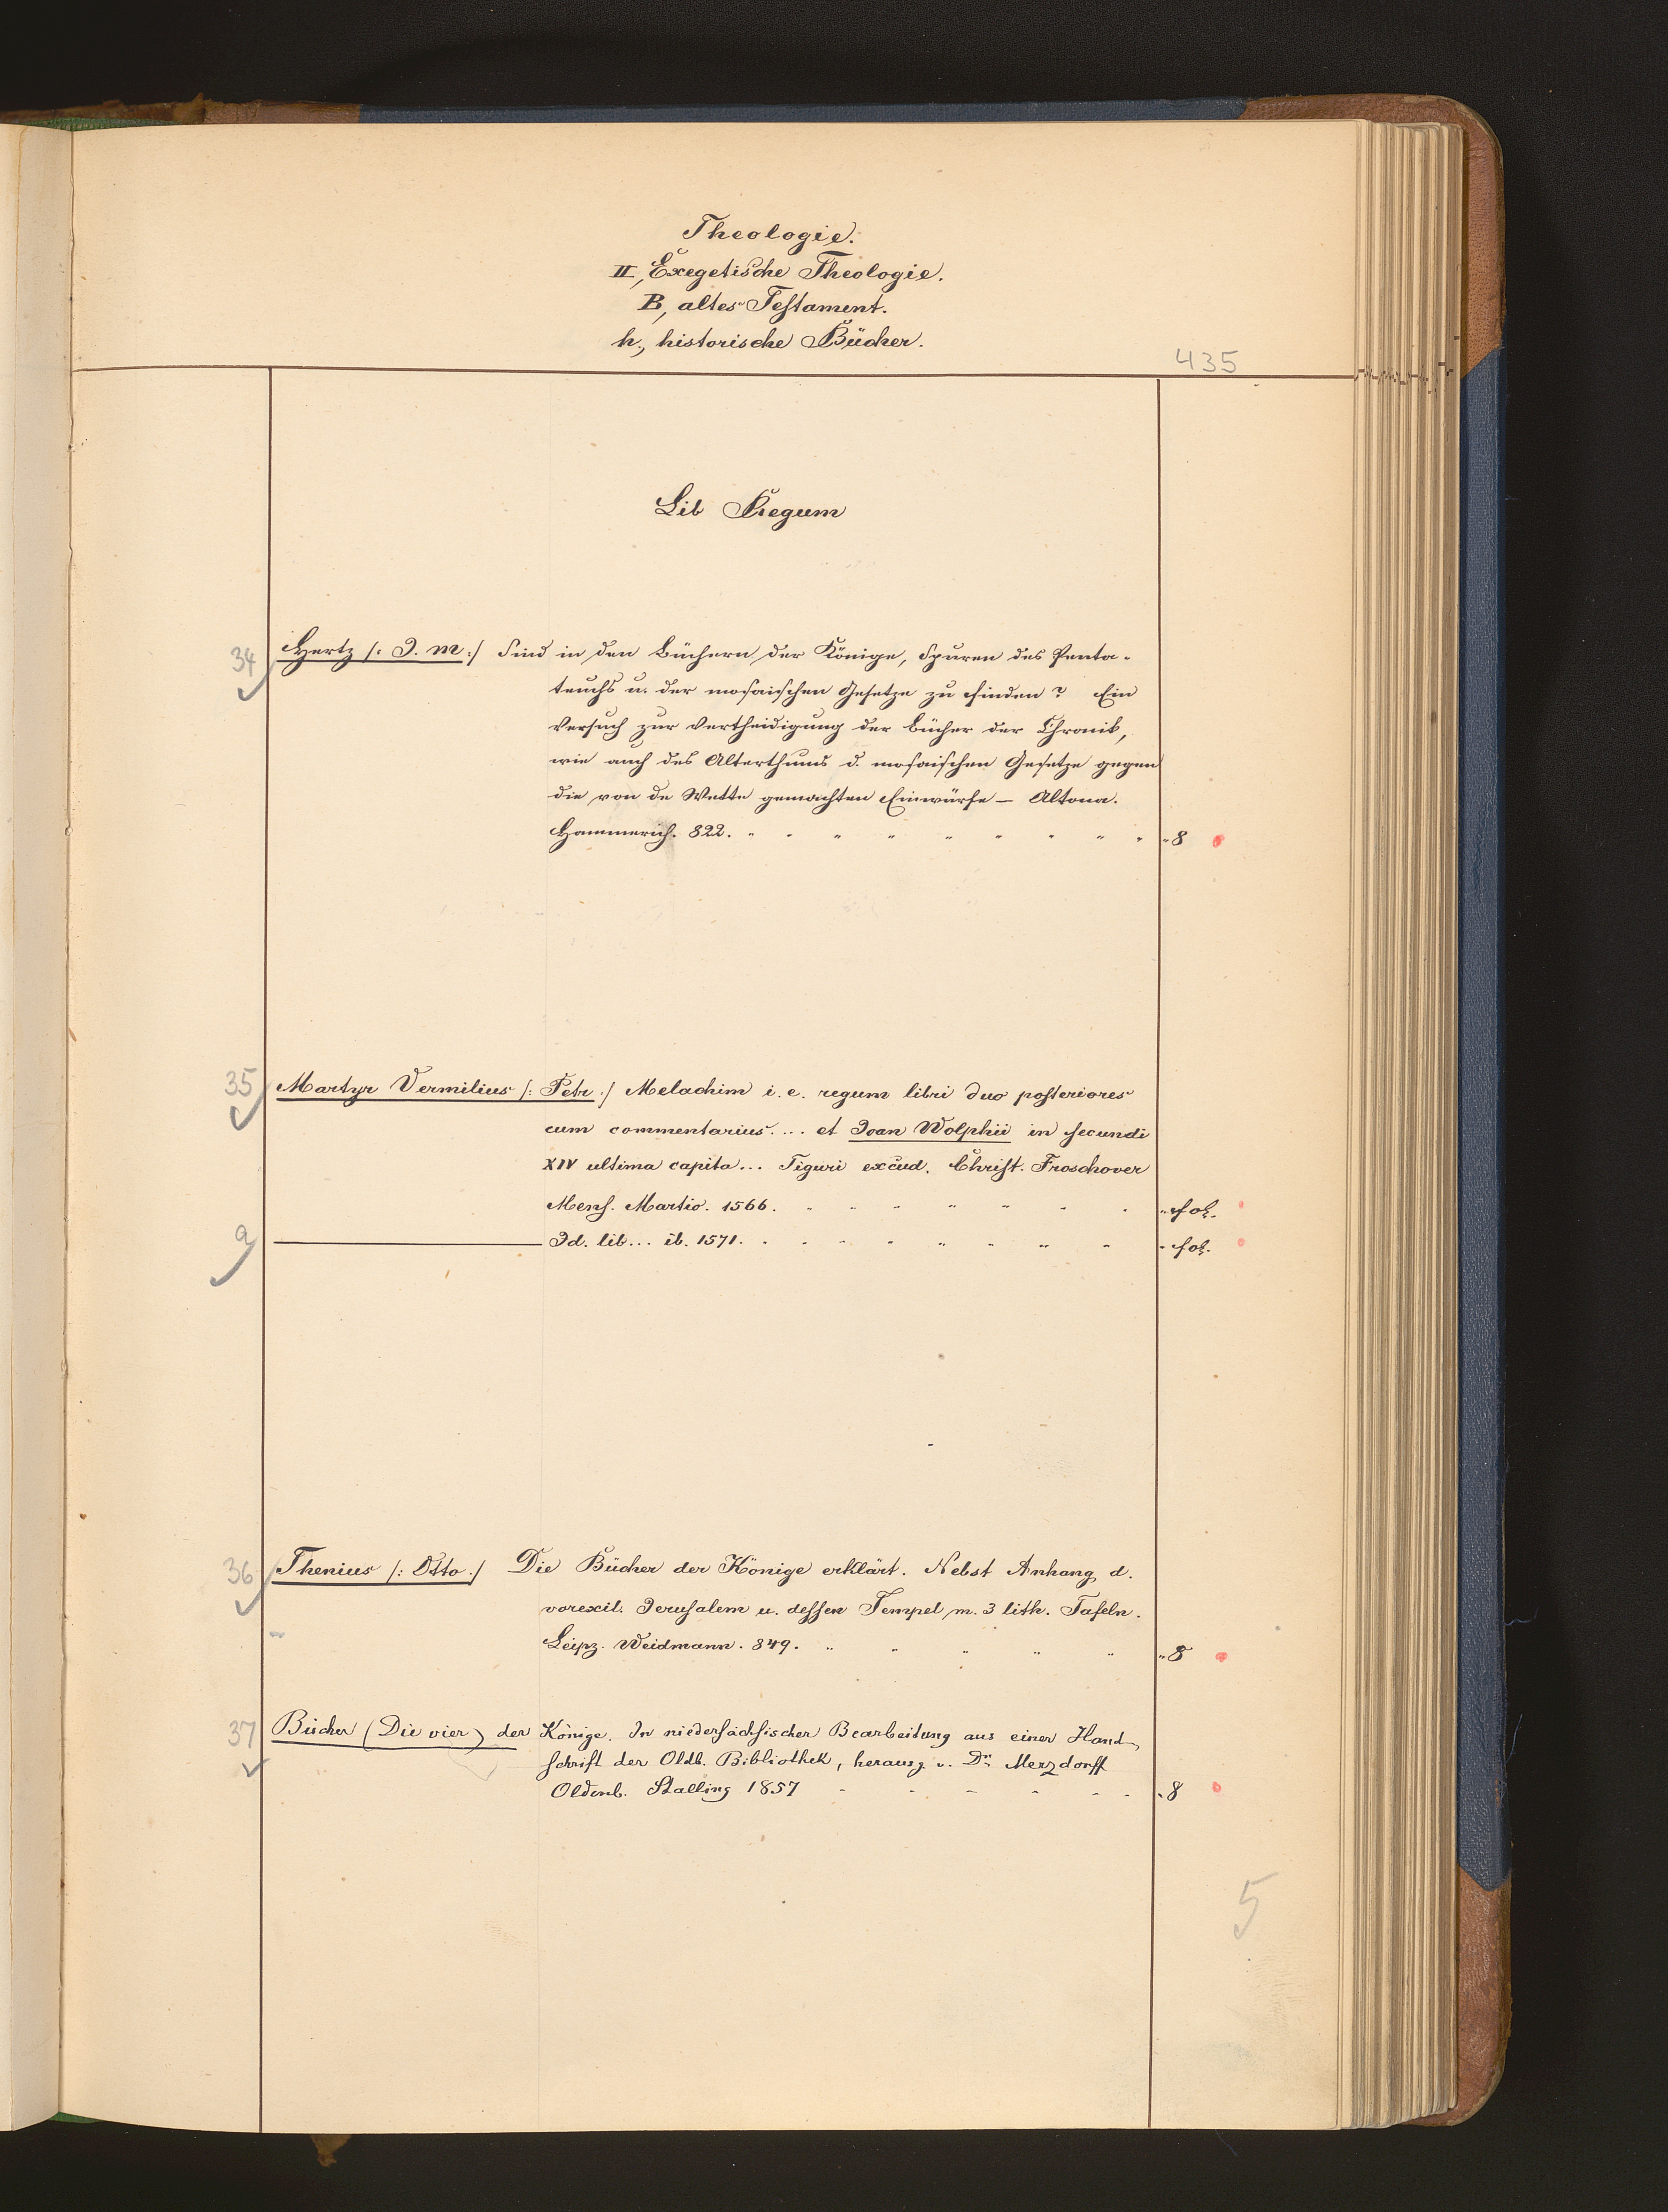 Theologie.
II, Exegetische Theologie.
B, altes Testament.
h., historische Bücher.
435
Lib Regum
34 Hertz /: J. M. :/ Sind in den Büchern der Könige, Spuren des Penta-
teuchs u. der mosaischen Gesetze zu finden? Ein
Versuch zur Vertheidigung der Bücher der Chronik,
wie auch des Alterthums d. mosaischen Gesetze gegen
die von de Wette gemachten Einwürfe – Altona.
Hammerich. 822. 8
35 Martyr Vermilius /: Petr :/ Melachim i. e. regum libri duo posteriores
cum commentarius .... et Joan Wolphii in secundi
XIV ultima capita ... Tiguri excud. Christ. Froschover
Mens. Martio. 1566. fol.
a Id. lib... ib. 1571. fol.
36 Thenius /: Otto :/ Die Bücher der Könige erklärt. Nebst Anhang d.
vorexil. Jerusalem u. dessen Tempel m. 3 lith. Tafeln.
Leipz. Weidmann. 849. 8
37 Bücher (Die vier) der Könige. In niedersächsischer Bearbeitung aus einer Hand
schrift der Oldb. Bibliothek, herausg. v. Dr. Merzdorff
Oldenb. Stalling 1857 8
5